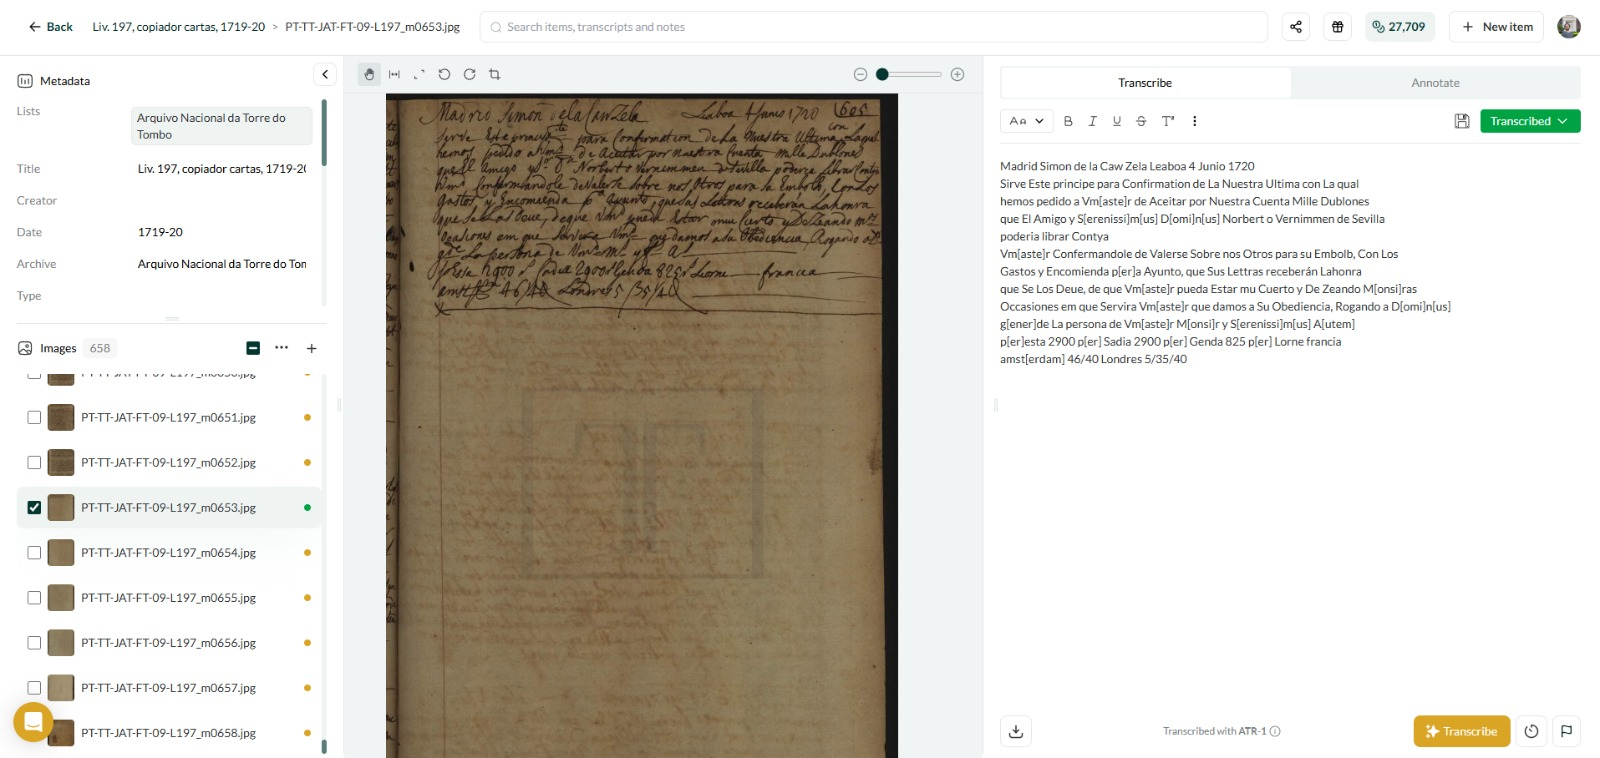 Back
Liv. 197, copiador cartas, 1719-20 > PT-TT-JAT-FT-09-L197_m0653.jpg
Search items, transcripts and notes
27,709
New item
Metadata
Lists
Arquivo Nacional da Torre do
Tombo
Title
Liv. 197, copiador cartas, 1719-20
Creator
Date
1719-20
Archive
Arquivo Nacional da Torre do Tom
Type
Images 658
PT-TT-JAT-FT-09-L197_m0651.jpg
PT-TT-JAT-FT-09-L197_m0652.jpg
PT-TT-JAT-FT-09-L197_m0653.jpg
PT-TT-JAT-FT-09-L197_m0654.jpg
PT-TT-JAT-FT-09-L197_m0655.jpg
PT-TT-JAT-FT-09-L197_m0656.jpg
PT-TT-JAT-FT-09-L197_m0657.jpg
PT-TT-JAT-FT-09-L197_m0658.jpg
Madrid Simon de la Lisboa 4 Junio 1720 605
para Confirmation de La Nuestra Ultima con Laqual
hemos pedido de Aceitar por nuestra Cuenta Mille Dublones
que El Amigo Norberto Vernimmen de Sevilla
de Valerse sobre nos Otros para
Gastos y Encomienda que sus Letras receberan La honra
que Se Los Deue, de que
Ocasiones em que
La persona de
francia
46/40 Londres 5/35/40
Transcribe
Annotate
Aa
B I U S T
Transcribed
Madrid Simon de la Caw Zela Leaboa 4 Junio 1720
Sirve Este principe para Confirmation de La Nuestra Ultima con La qual
hemos pedido a Vm[aste]r de Aceitar por Nuestra Cuenta Mille Dublones
que El Amigo y S[erenissi]m[us] D[omi]n[us] Norbert o Vernimmen de Sevilla
poderia librar Contya
Vm[aste]r Confermandole de Valerse Sobre nos Otros para su Embolb, Con Los
Gastos y Encomienda p[er]a Ayunto, que Sus Letras receberán Lahonra
que Se Los Deue, de que Vm[aste]r pueda Estar mu Cuerto y De Zeando M[onsi]ras
Occasiones em que Servira Vm[aste]r que damos a Su Obediencia, Rogando a D[omi]n[us]
g[ener]de La persona de Vm[aste]r M[onsi]r y S[erenissi]m[us] A[utem]
p[er]esta 2900 p[er] Sadia 2900 p[er] Genda 825 p[er] Lorne francia
amst[erdam] 46/40 Londres 5/35/40
Transcribed with ATR-1
Transcribe